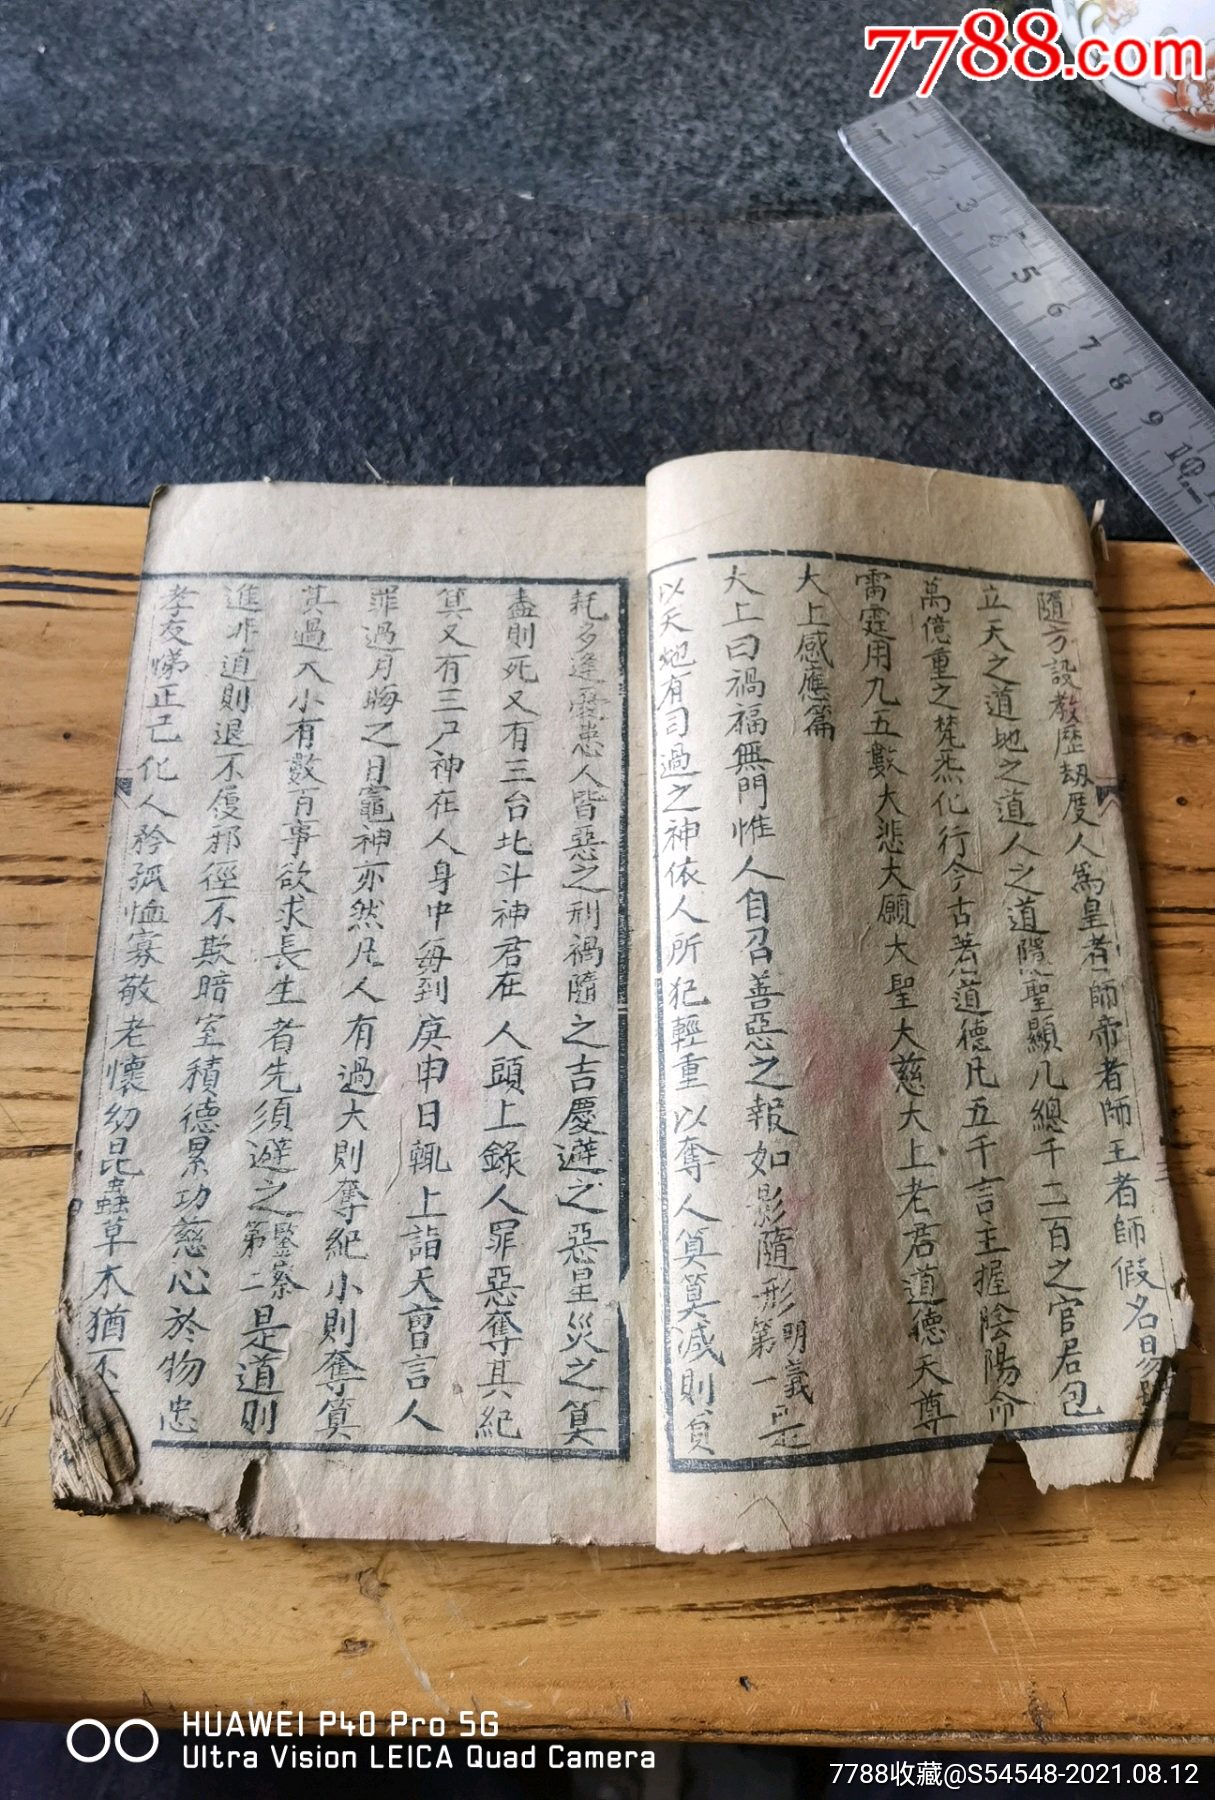 7788.com
1 2 3 4 5 6 7 8 9 10
隨方設教歷劫度人為皇者師帝者師王者師假名易號
立天之道地之道人之道隱聖顯凡總千二百之官君包
萬億重之梵炁化行今古著道德凡五千言主握陰陽命
雷霆用九五數大悲大願大聖大慈大上老君道德天尊
大上感應篇
大上曰禍福無門惟人自召善惡之報如影隨形明義第一所是
以天地有司過之神依人所犯輕重以奪人算算减則貧
耗多逢憂患人皆惡之刑禍隨之吉慶避之惡星災之算
盡則死又有三台北斗神君在人頭上錄人罪惡奪其紀
算又有三尸神在人身中每到庚申日輒上詣天曹言人
罪過月晦之日竈神亦然凡人有過大則奪紀小則奪算
其過大小有數百事欲求長生者先須避之鑒察第二是道則
進非道則退不履邪徑不欺暗室積德累功慈心於物忠
孝友悌正己化人矜孤恤寡敬老懷幼昆蟲草木猶不
HUAWEI P40 Pro 5G
Ultra Vision LEICA Quad Camera
7788收藏@S54548-2021.08.12